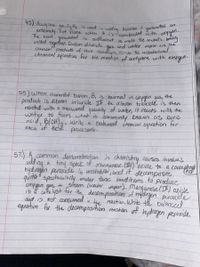 45) Acetylene gas, C₂H₂, is used in welding because it generates an
extremely hot flame when it is combusted with oxygen.
The heat generated is sufficient to melt the metals being
welded together. Carbon dioxide gas and water vapor are the
chemical products of this reaction. Write the unbalanced
chemical equation for the reaction of acetylene with oxygen.
55.) When elemental boron, B, is burned in oxygen gas, the
product is diboron trioxide. If the diboron trioxide is then
reacted with a measured quantity of water, it reacts with the
water to form what is commonly known as boric
acid, B(OH)₃. Write a balanced chemical equation for
each of these processes.
57.) A common demonstration in chemistry courses involves
adding a tiny speck of manganese (IV) oxide to a concentrated
hydrogen peroxide
is unstable, and it decomposes
quite spectacularly under these conditions to produce
oxygen gas and steam (water vapor). Manganese (IV) oxide
is a catalyst for the decomposition of hydrogen peroxide
and is not consumed in the reaction. Write the balanced
equation for the decomposition reaction of hydrogen peroxide.